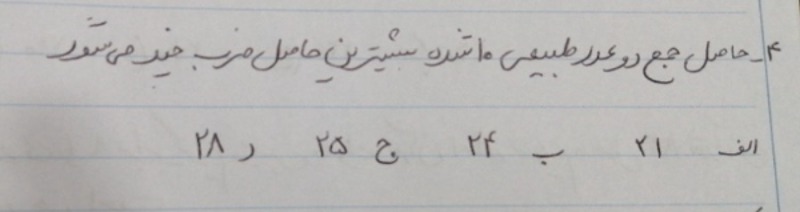 ۴- حاصل جمع دو عدد طبیعی ۱۰ شده بیشترین حاصل ضرب چند می شود
الف ۲۱ ب ۲۴ ج ۲۵ د ۲۸